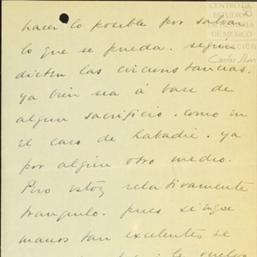 hacer lo posible por salvar
lo que se pueda. según
dicten las circunstancias.
ya bien sea á base de
algun sacrificio. como en
el caso de Labadié. ya
por algún otro medio.
Pero estoy relativamente
tranquilo. pues si
manos tan excelentes se
CENTRO DE
ESTUDIOS
DE MEXICO